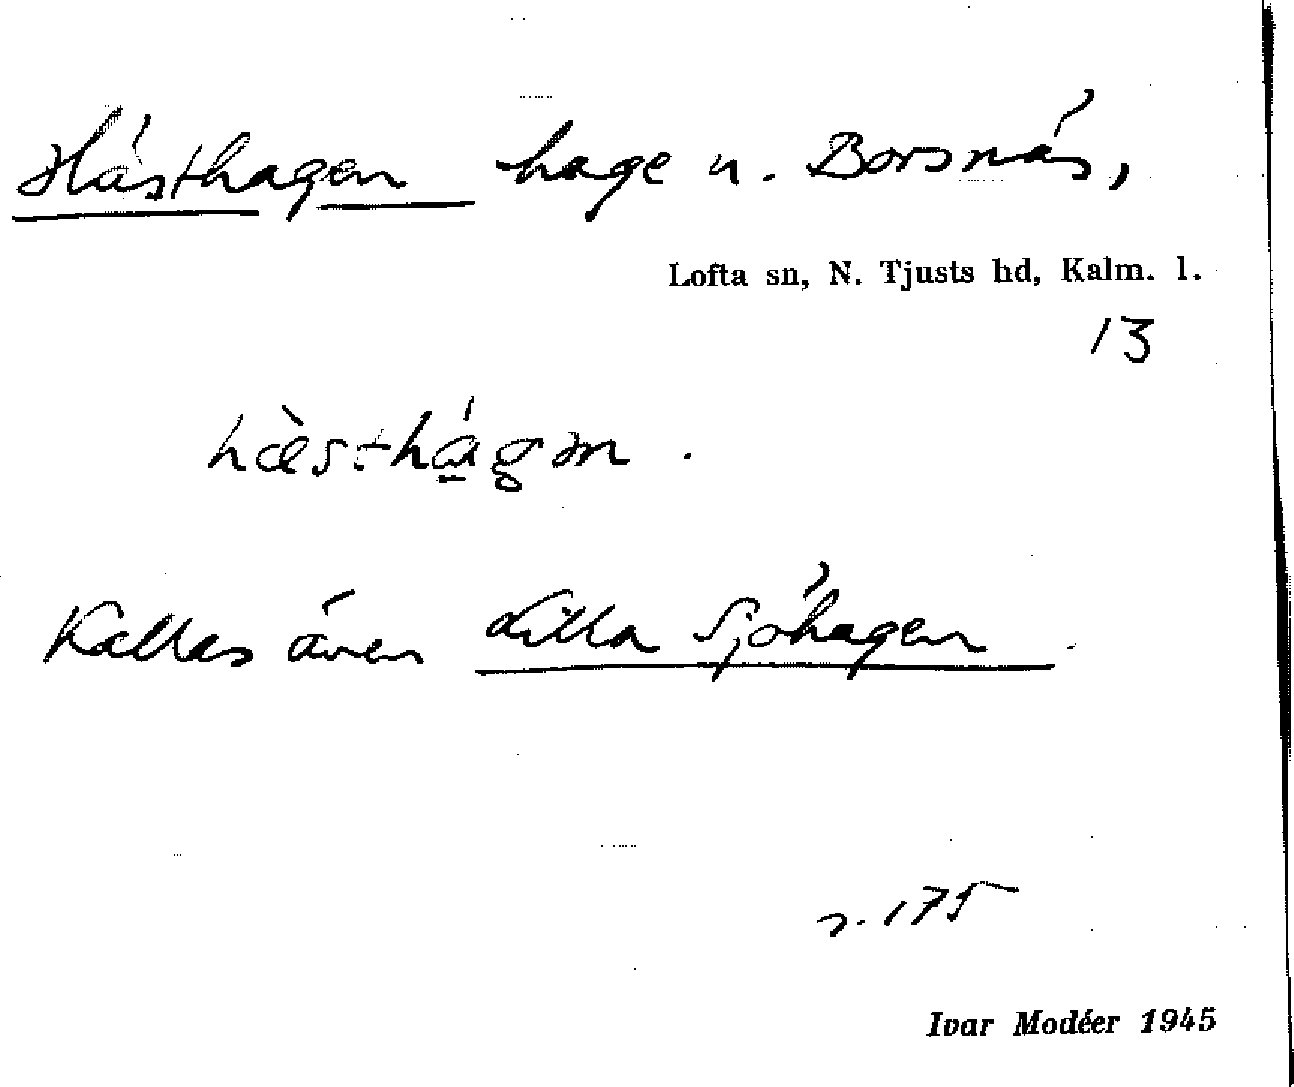 Hästhagen hage u. Borsnäs,
Lofta sn, N. Tjusts hd, Kalm. l.
13
hæ̀sthá̱gən.
Kallas även Lilla Sjöhagen.
s. 175
Ivar Modéer 1945